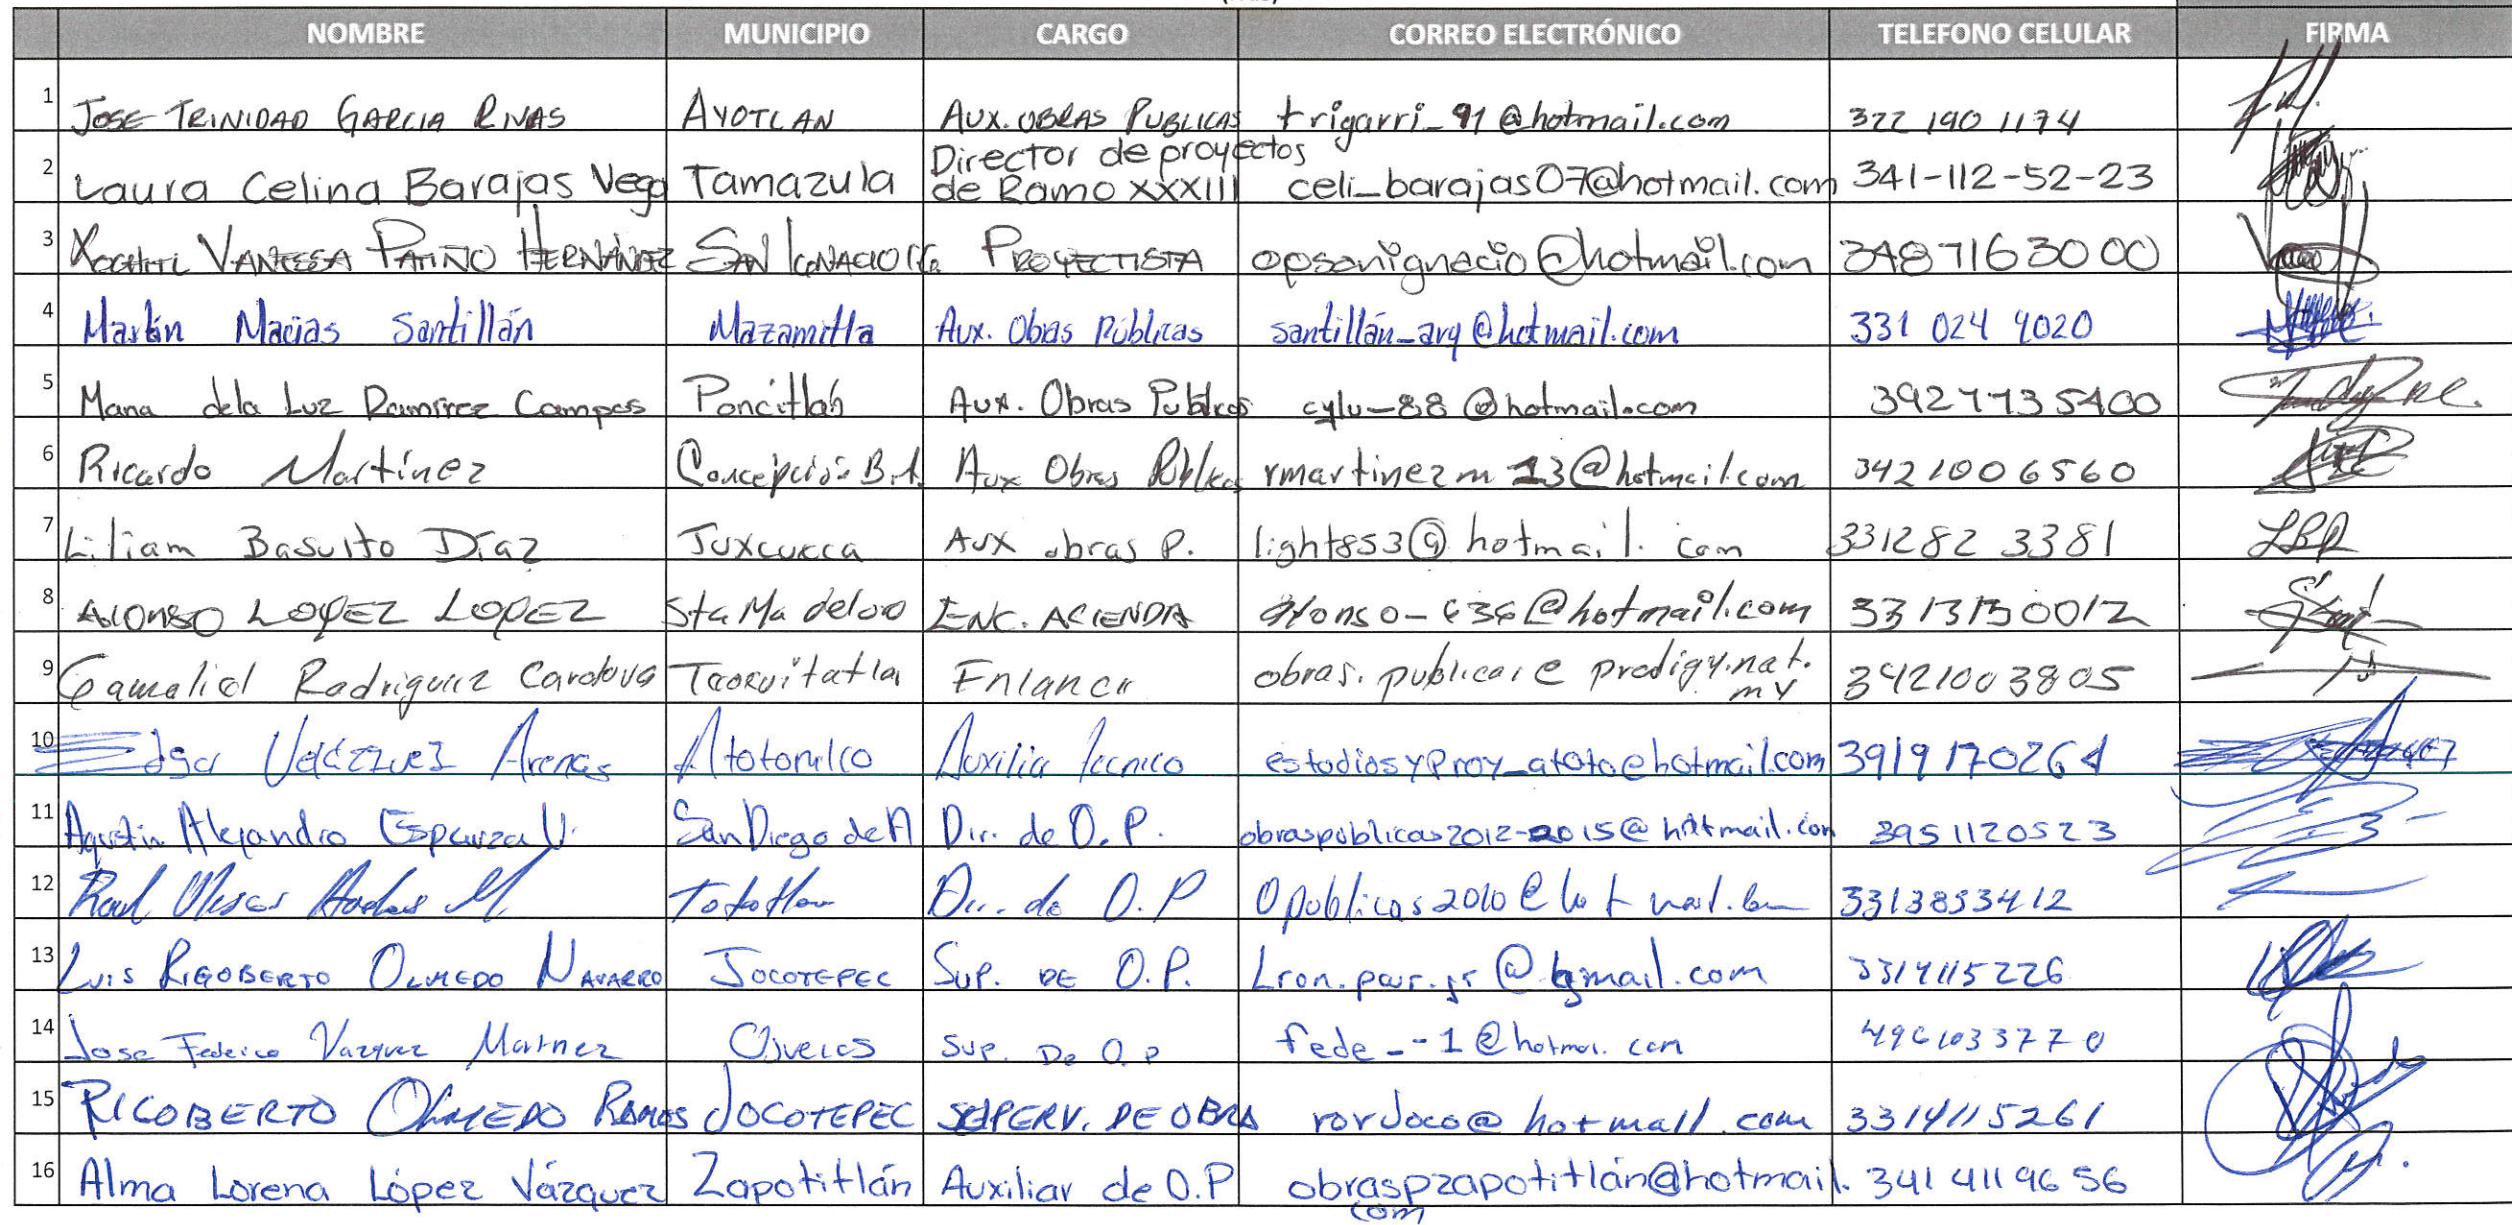 NOMBRE MUNICIPIO CARGO CORREO ELECTRÓNICO TELEFONO CELULAR FIRMA
1 JOSE TRINIDAD GARCIA RIVAS AYOTLAN AUX. OBRAS PUBLICAS trigarri_91@hotmail.com 322 190 1174
2 Laura Celina Barajas Vega Tamazula Director de proyectos de Ramo XXXIII celi_barajas07@hotmail.com 341-112-52-23
3 XOCHITL VANESSA PATIÑO HERNÁNDEZ SAN IGNACIO PROYECTISTA opsanignacio@hotmail.com 3487163000
4 Martín Macias Santillán Mazamitla Aux. Obras Públicas santillán_arq@hotmail.com 331 024 4020
5 Maria dela Luz Ramírez Campos Poncitlán Aux. Obras Publicas cylu-88@hotmail.com 3927735400
6 Ricardo Martínez Concepción B.A. Aux Obras Públicas rmartinezm 13@hotmail.com 3421006560
7 Liliam Basulto Díaz Tuxcueca AUX obras P. light853@hotmail.com 331282 3381
8 ALONSO LOPEZ LOPEZ Sta Ma del oro ENC. ACIENDA @hotmail.com
9 Gamaliel Rodriguez Cardova Enlance obras.publicas@prodigy.net.mx 3421003805
10 Edgar Velázquez Arenas Atotonilco Auxiliar Tecnico estudiosyproy_atoto@hotmail.com 3919170264
11 Agustin Alejandro Esparza V. San Diego de A Dir. de O.P. obraspublicas2012-2015@hotmail.com 3951120523
12 Raul M. Tototlan Dir. de O.P Opublicas2010@hotmail.com 3313853412
13 LUIS RIGOBERTO OLMEDO NAVARRO JOCOTEPEC SUP. DE O.P. Lron.par.jr@gmail.com 3314115226
14 Jose Federico Vazquez Martinez Ojuelos SUP. De O.P fede_-1@hotmai. com 4961033770
15 RIGOBERTO OLMEDO RAMOS JOCOTEPEC SUPERV. DE OBRA rorJoco@hotmail.com 3314115261
16 Alma Lorena López Vázquez Zapotitlán Auxiliar de O.P obraspzapotitlán@hotmail.com 341 411 96 56